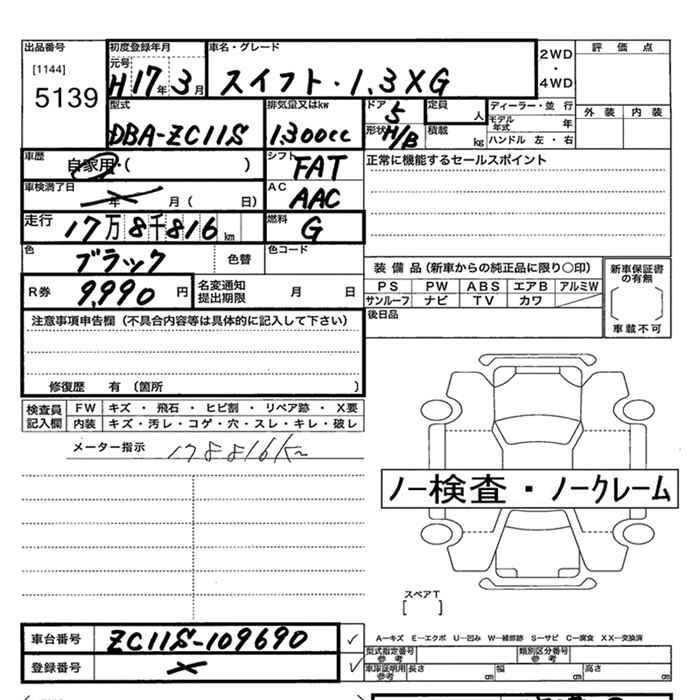 出品番号 初度登録年月 車名・グレード 2WD ・ 4WD 評価点
[1144] 元号
5139 H17年3月 スイフト・1.3XG
型式 排気量又はkw ドア 定員 ディーラー・並行 外装 内装
DBA-ZC11S 1,300cc 5 人 モデル年式 年
形状 H/B 積載 kg ハンドル 左・右
車歴 自家用・( ) シフト FAT 正常に機能するセールスポイント
車検満了日 年 月( 日) AC AAC
走行 17万8千816km 燃料 G
色 ブラック 色替 色コード
装備品(新車からの純正品に限り○印) 新車保証書の有無
R券 9,990円 名変通知提出期限 月 日 PS PW ABS エアB アルミW
サンルーフ ナビ TV カワ
注意事項申告欄(不具合内容等は具体的に記入して下さい) 後日品 車載不可
修復歴 有(箇所 )
検査員記入欄 FW キズ・飛石・ヒビ割・リペア跡・X要
内装 キズ・汚レ・コゲ・穴・スレ・キレ・破レ
メーター指示 178816km
ノー検査・ノークレーム
スペアT
[ ]
車台番号 ZC11S-109690 ✓ A―キズ E―エクボ U―凹み W―補修跡 S―サビ C―腐食 XX―交換済
登録番号 ✓ 型式指定番号 参考 類別区分番号 参考
車庫証明用 参考 長さ cm 幅 cm 高さ cm